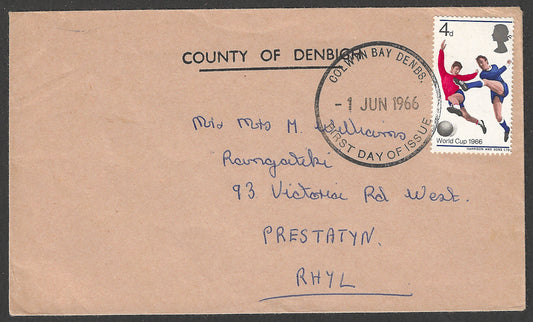 4d
COUNTY OF DENBIGH
COLWYN BAY DENBS.
-1 JUN 1966
FIRST DAY OF ISSUE
World Cup 1966
HARRISON AND SONS LTD
M. Williams
93 Victoria Rd West.
PRESTATYN.
RHYL